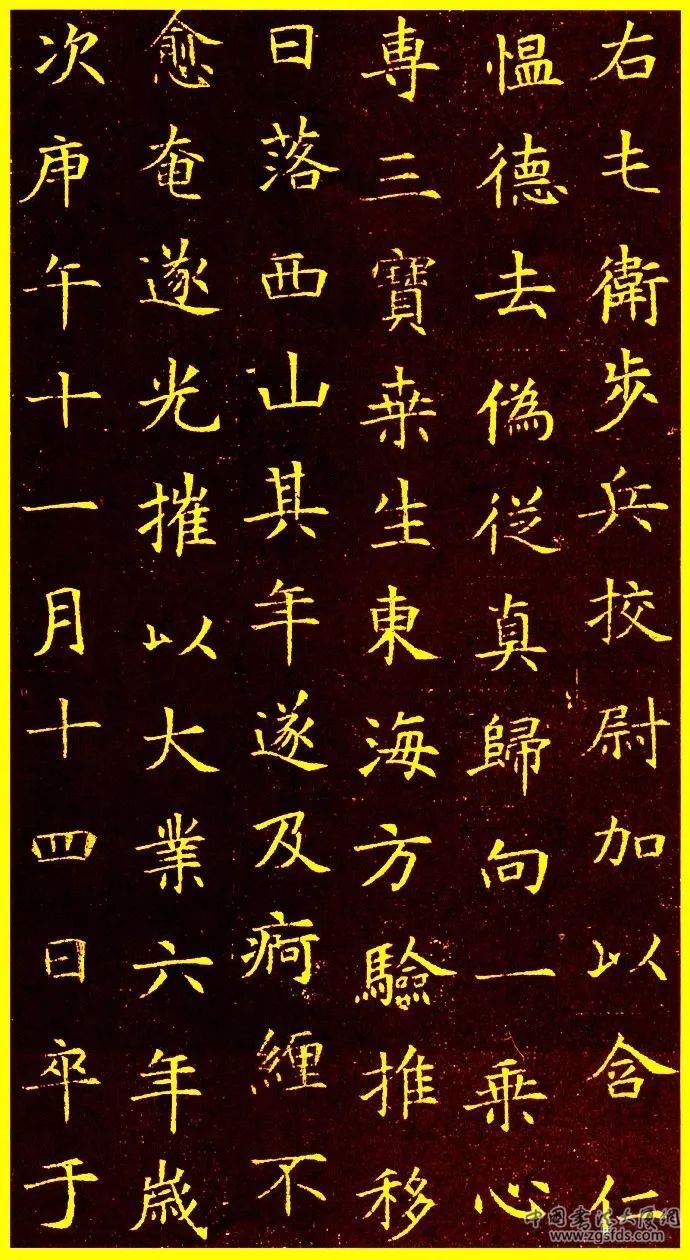 右屯衛步兵挍尉加以含仁
愠德去偽従真歸向一乗心
専三寳桒生東海方驗推移
日落西山其年遂及痾纒不
愈奄遂光摧以大業六年歲
次庚午十一月十四日卒于
www.zgsfds.com